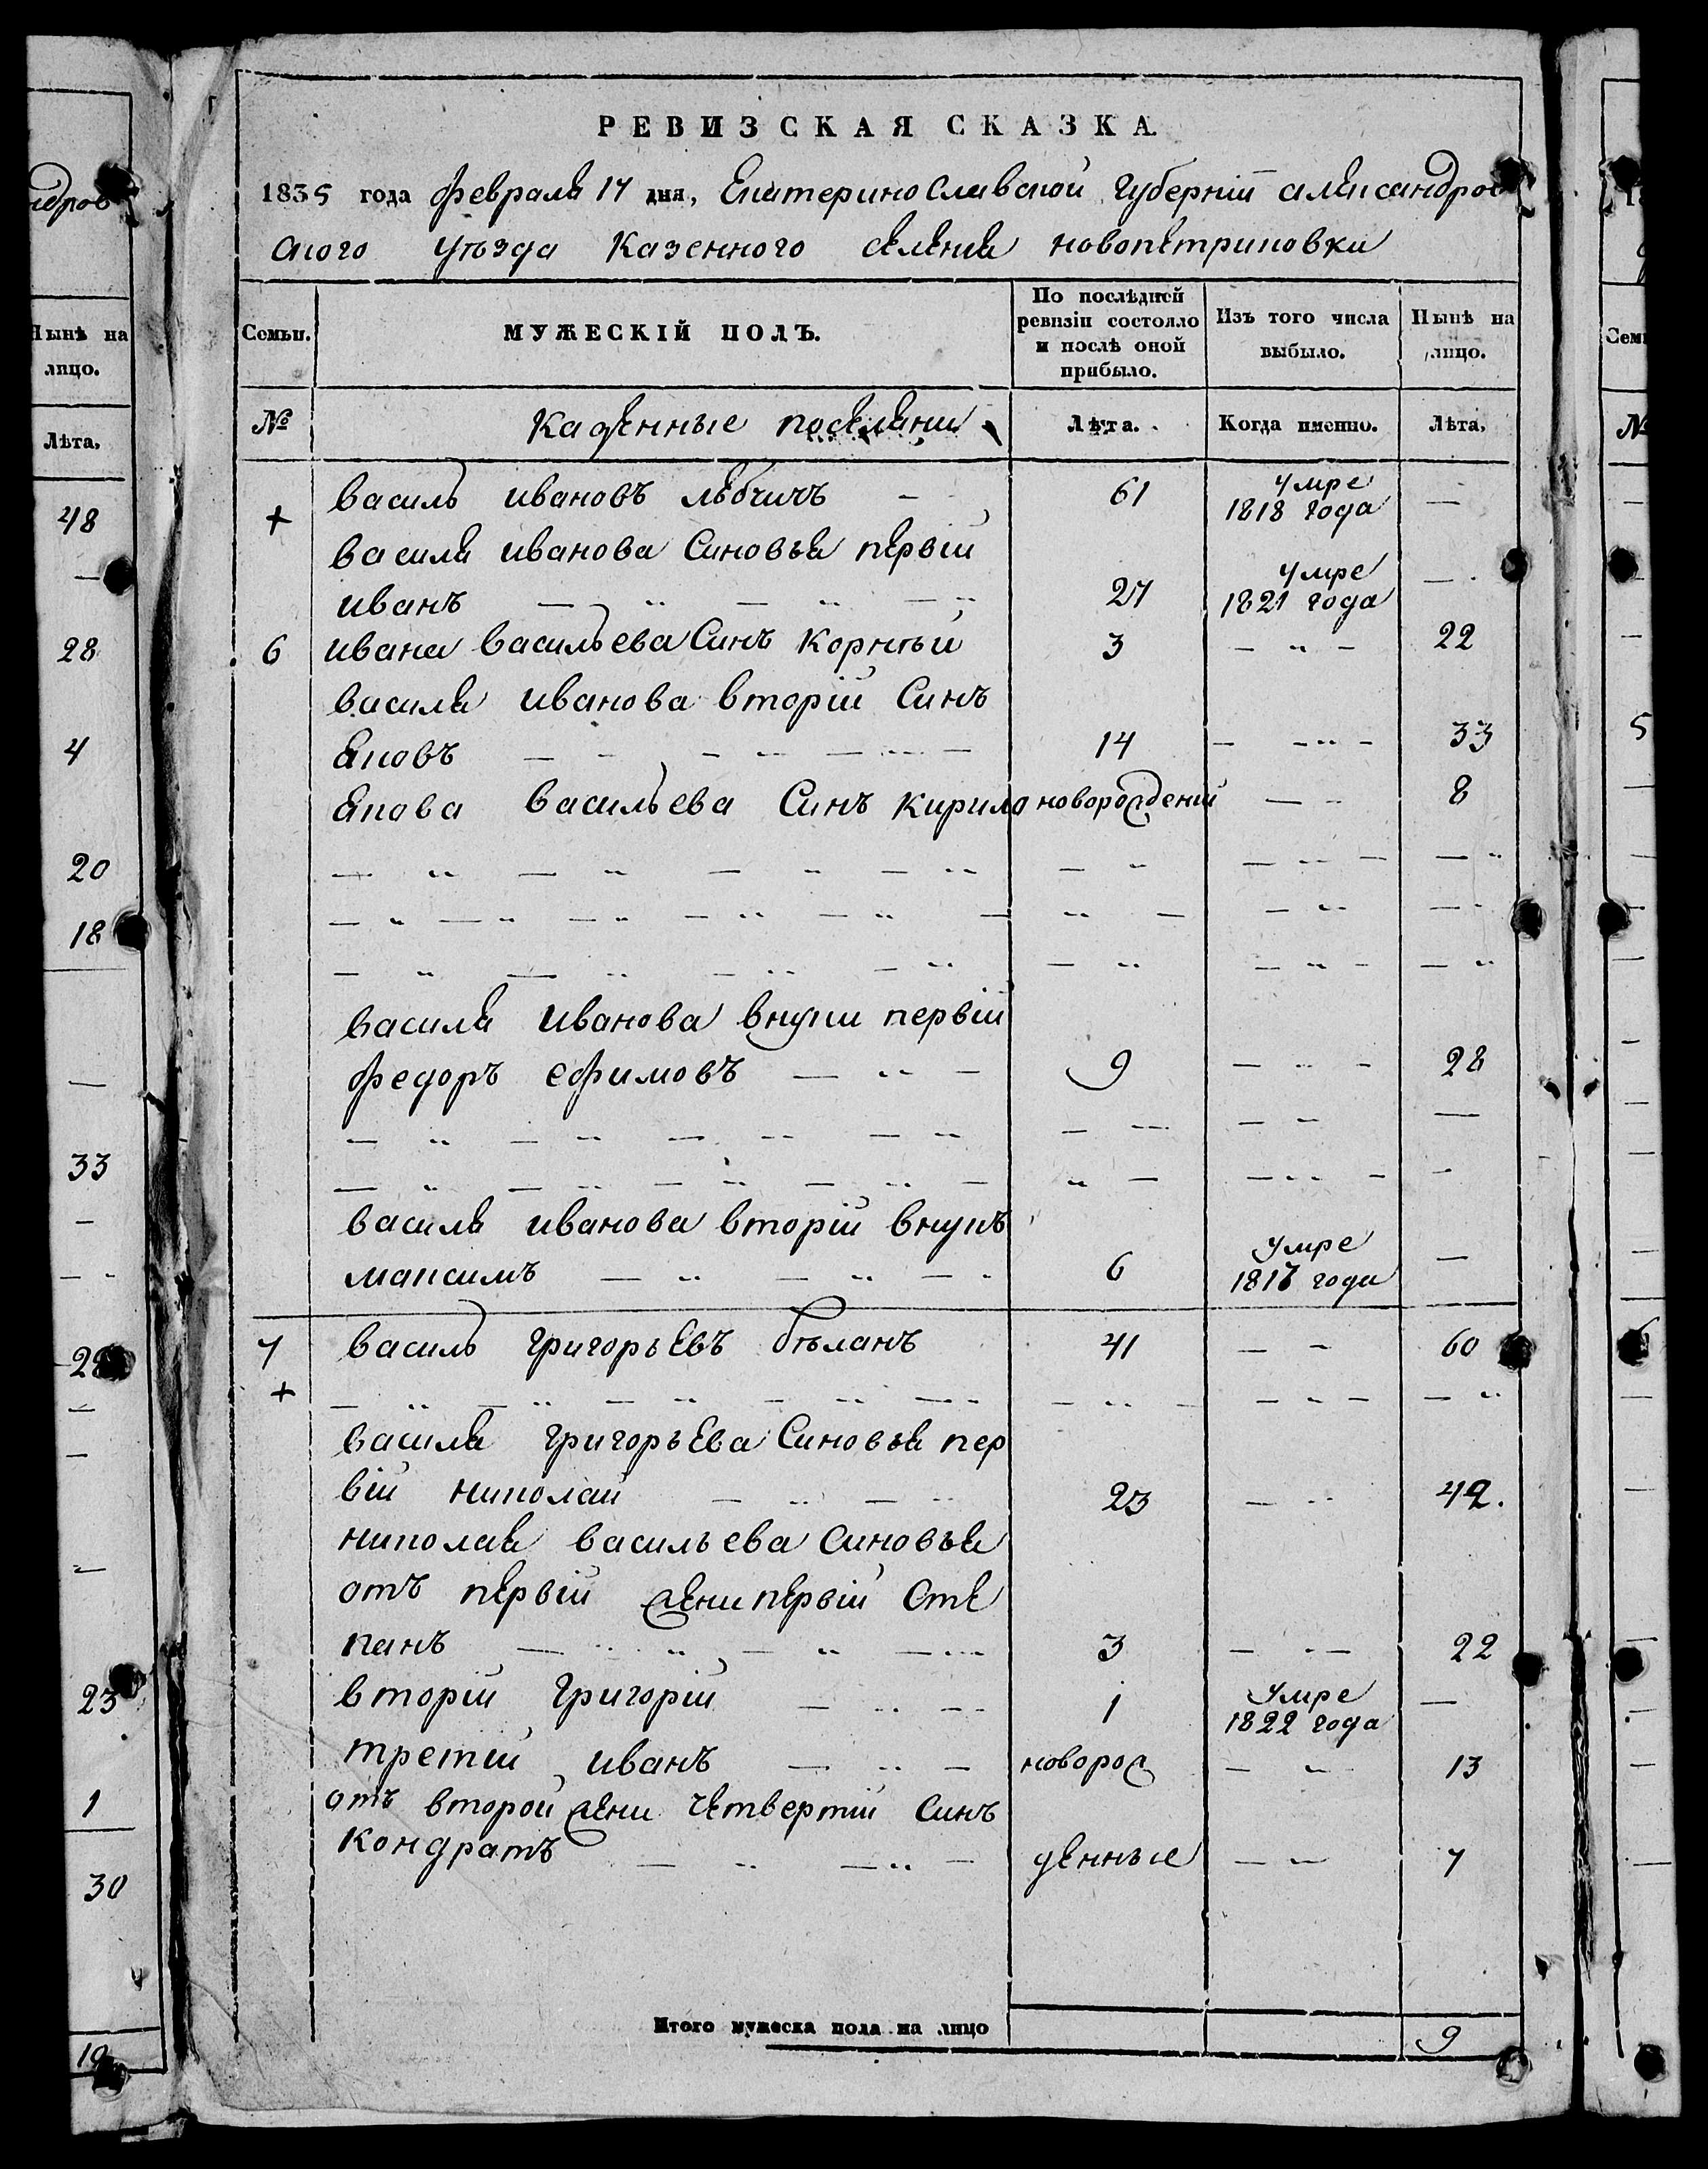 РЕВИЗСКАЯ СКАЗКА.
1835 года февраля 17 дня, Екатеринославской Губерніи александров
ского уѣзда казенного селенія новопетриковки
Семьи. МУЖЕСКІЙ ПОЛЪ. По послѣдней ревизіи состояло и послѣ оной прибыло. Изъ того числа выбыло. Нынѣ на лицо.
№ Казенные поселяни Лѣта. Когда именно. Лѣта.
+ василь ивановъ 61 умре 1818 года —
василя иванова Синовья первій
иванъ 27 умре 1821 года —
6 ивана васильева Синъ корнѣй 3 22
василя иванова вторій Синъ
яковъ 14 33
якова васильева Синъ кирило новорожденій 8
василя иванова внуки первій
федоръ ефимовъ 9 28
василя иванова вторій внукъ
максимъ 6 умре года —
7 василь григорьевъ бѣланъ 41 60
+
василя григорьева Синовья пер
вій николай 23 42.
николая васильева Синовья
отъ первій жени первій Сте
панъ 3 22
вторій григорій 1 умре 1822 года —
третій иванъ новорож 13
отъ второй жени четвертій Синъ
кондратъ денные 7
Итого мужеска пола на лицо 9
ндров
Нынѣ на
лицо.
Лѣта.
48
28
4
20
18
33
23
1
30
Семь
№
5